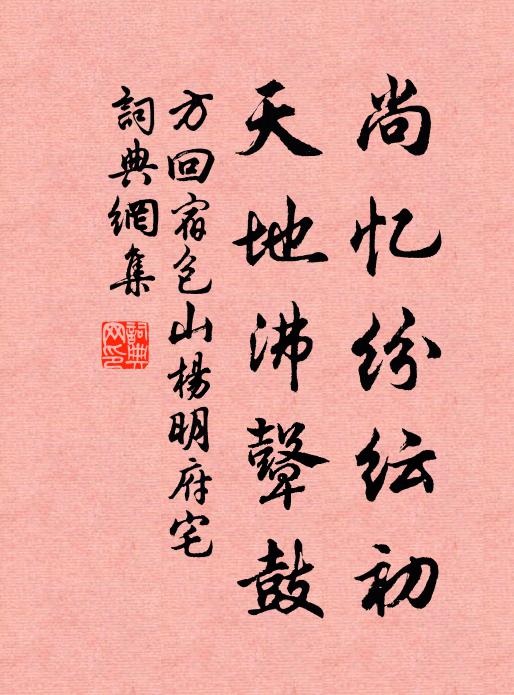 尚忆纷纭初
天地沸鼙鼓
方回宿包山楊明府宅
詞典網集
詞典
网印